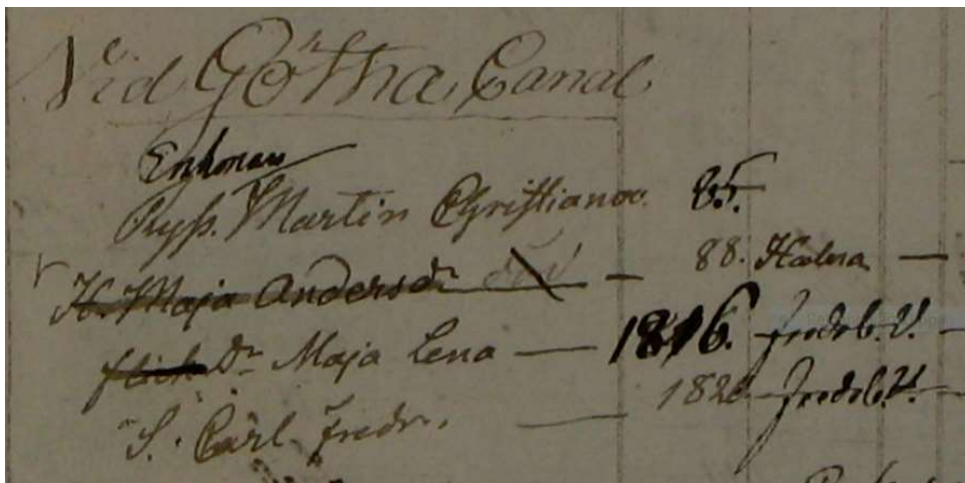 Vid Götha Canal
Enkoman
Ryss. Martin Christianov. 85.
H. Maja Andersdr 88. Halna
flick Dr Maja Lena 1816. Fredsb. V.
S. Carl Fredr. 1820 Fredsb. V.